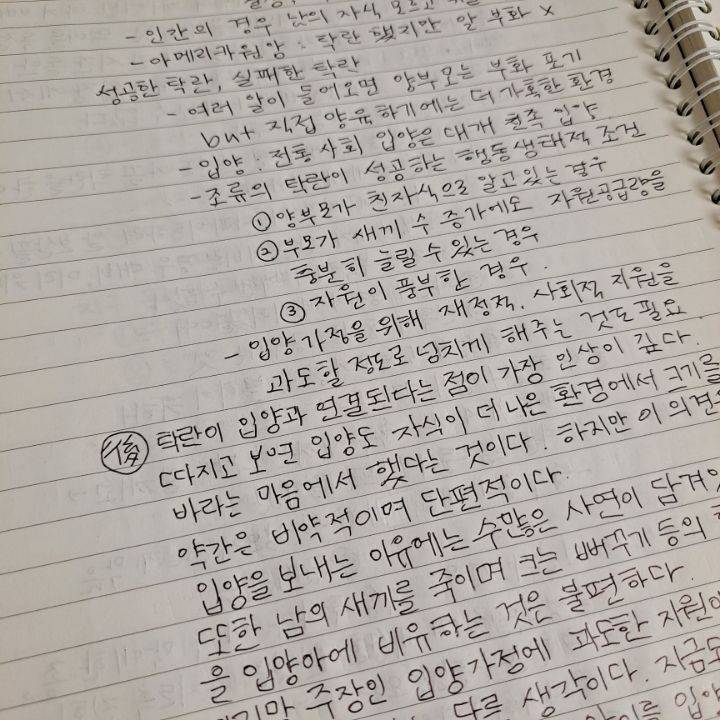 - 인간의 경우 남의 자식 모르고
- 아메리카원앙 : 탁란 했지만 알 부화 x
성공한 탁란, 실패한 탁란
- 여러 알이 들어오면 양부모는 부화 포기
but 직접 양육하기에는 더 가혹한 환경
- 입양 : 전통사회 입양은 대개 친족 입양
- 조류의 탁란이 성공하는 행동생태적 조건
① 양부모가 친자식으로 알고 있는 경우
② 부모가 새끼 수 증가에도 자원공급량을
충분히 늘릴 수 있는 경우
③ 자원이 풍부한 경우.
- 입양가정을 위해 재정적, 사회적 지원을
과도할 정도로 넘치게 해주는 것도 필요
後 탁란이 입양과 연결된다는 점이 가장 인상이 깊다.
따지고 보면 입양도 자식이 더 나은 환경에서 크기를
바라는 마음에서 했다는 것이다. 하지만 이 의견
약간은 비약적이며 단편적이다.
입양을 보내는 이유에는 수많은 사연이 담겨
또한 남의 새끼를 죽이며 크는 뻐꾸기 등의
을 입양아에 비유하는 것은 불편하다.
주장인 입양가정에 과도한 지원이
다른 생각이다. 지금도